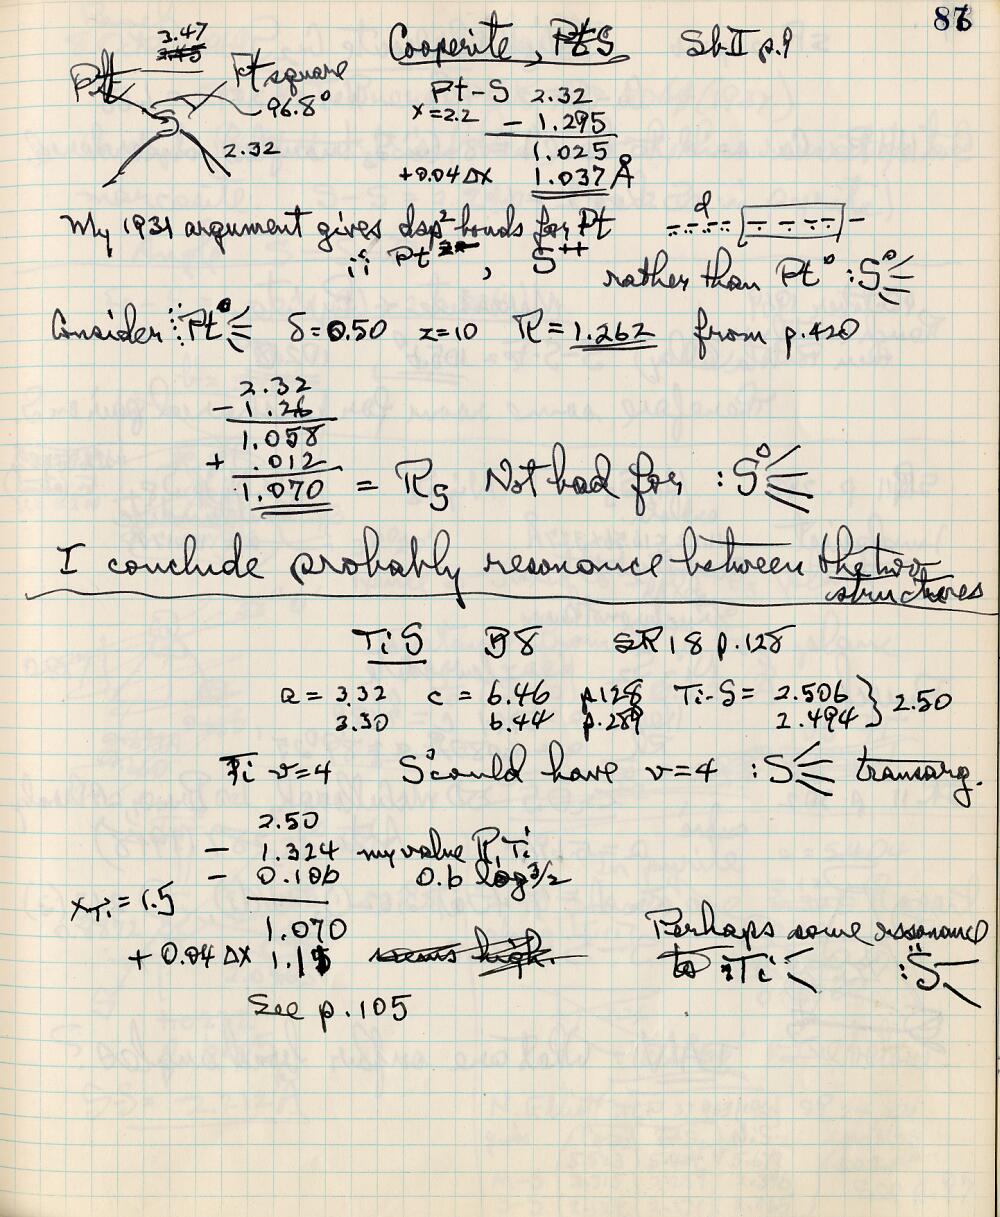 87
Cooperite, PtS SbII p.9
3.47
Pt Pt square
96.8°
S
2.32
Pt-S 2.32
x=2.2 - 1.295
1.025
+0.04Δx 1.037 Å
My 1931 argument gives dsp² bonds for Pt d
ii Pt , S++
rather than Pt° :S°
Consider Pt δ=0.50 z=10 R=1.262 from p.420
2.32
- 1.26
1.058
+ .012
1.070 = Rs Not bad for :S°
I conclude probably resonance between the two
structures
TiS B8 SR18 p.128
a = 3.32 c = 6.46 p.128 Ti-S = 2.506 } 2.50
3.30 6.44 p.289 2.494
Ti v=4 S° could have v=4 :S transarg.
2.50
- 1.324 my value R1 Ti
- 0.106 0.6 log 3/2
xTi = 1.5
1.070 Perhaps some resonance
+ 0.04 Δx 1.1 seems high. to Ti :S
See p.105